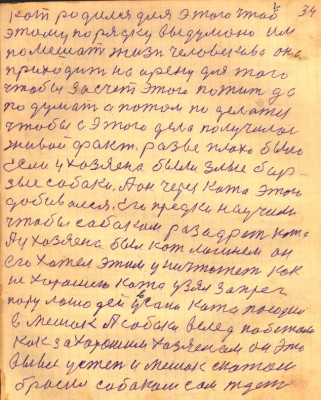 34
Кот родился для этого чтоб
этому порядку выдумоно им
помешат жизн человечква она
приходит на арену для того
чтобы защет этого пожит да
по думат а потом по делатся
чтобы с этого дела получился
живой факт. разве плохо было
если у хозяена были злые бар-
зые собаки. А он через Кота этого
добивался. его предки научили
чтобы собакам разадрат кота
А у хозяена был кот лишнем он
его хотел этим уничтожет как
не хорошего Кота узял запрег
пару лошодей усана Кота посодил
в мешок А собаки вслед побежали
как за хорошим хозяеном он это
вывес у степ и мешок скатом
бросил собакам сам ждет